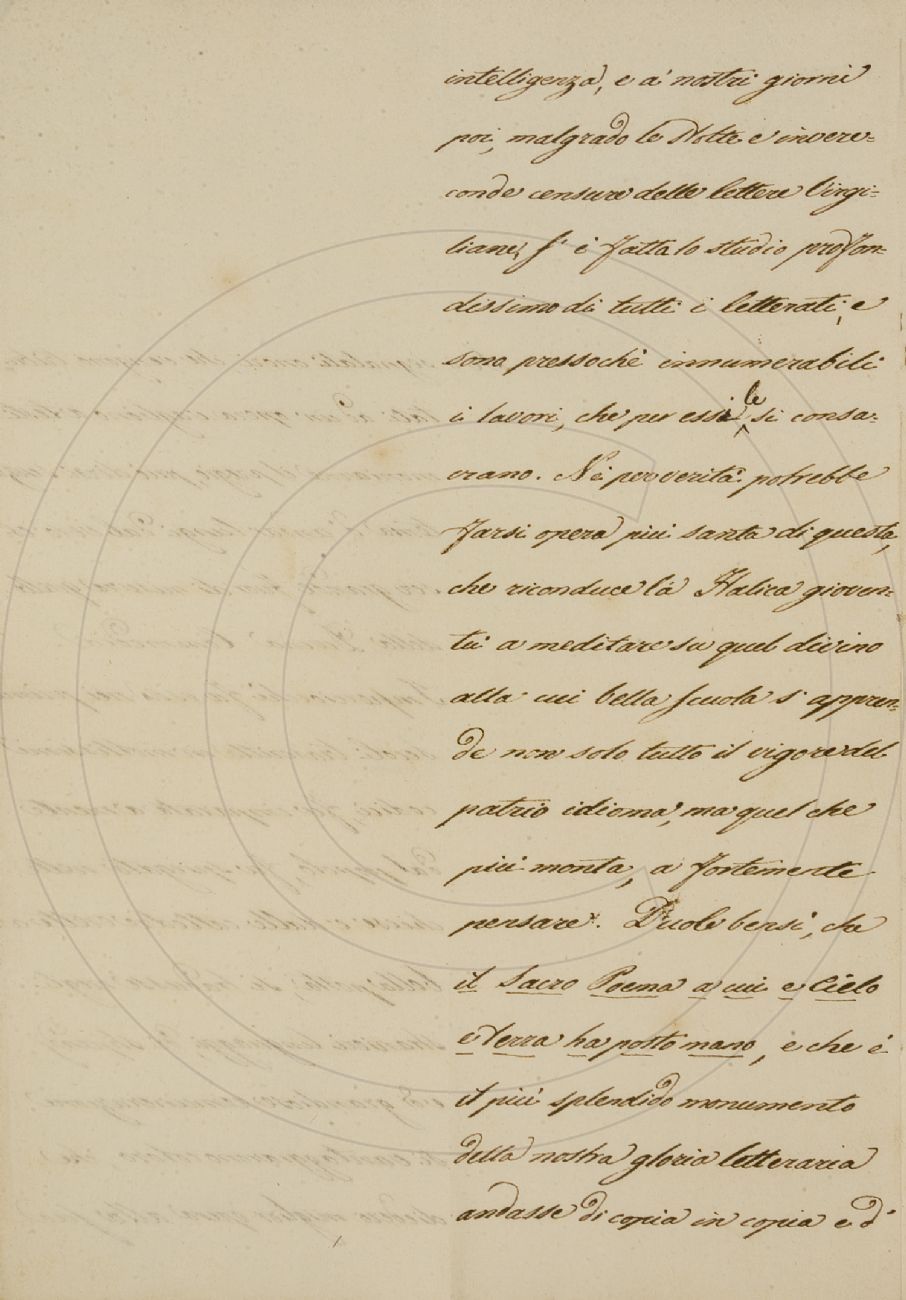 intelligenza, e a' nostri giorni
poi, malgrado le stolte e invere=
conde censure delle lettere Virgi=
liane, s' è fatta lo studio profon=
dissimo di tutti i letterati, e
sono pressochè innumerabili
i lavori, che per essi le si consa=
crano. Nè per verità potrebbe
farsi opera più santa di questa,
che riconduce la Italica gioven=
tù a meditare su quel divino
alla cui bella scuola s' appren=
de non solo tutto il vigore del
patrio idioma, ma quel che
più monta, a fortemente
pensare. Duole bensì, che
il Sacro Poema a cui e Cielo
e terra ha posto mano, e che è
il più splendido monumento
della nostra gloria letteraria
andasse di copia in copia e d'